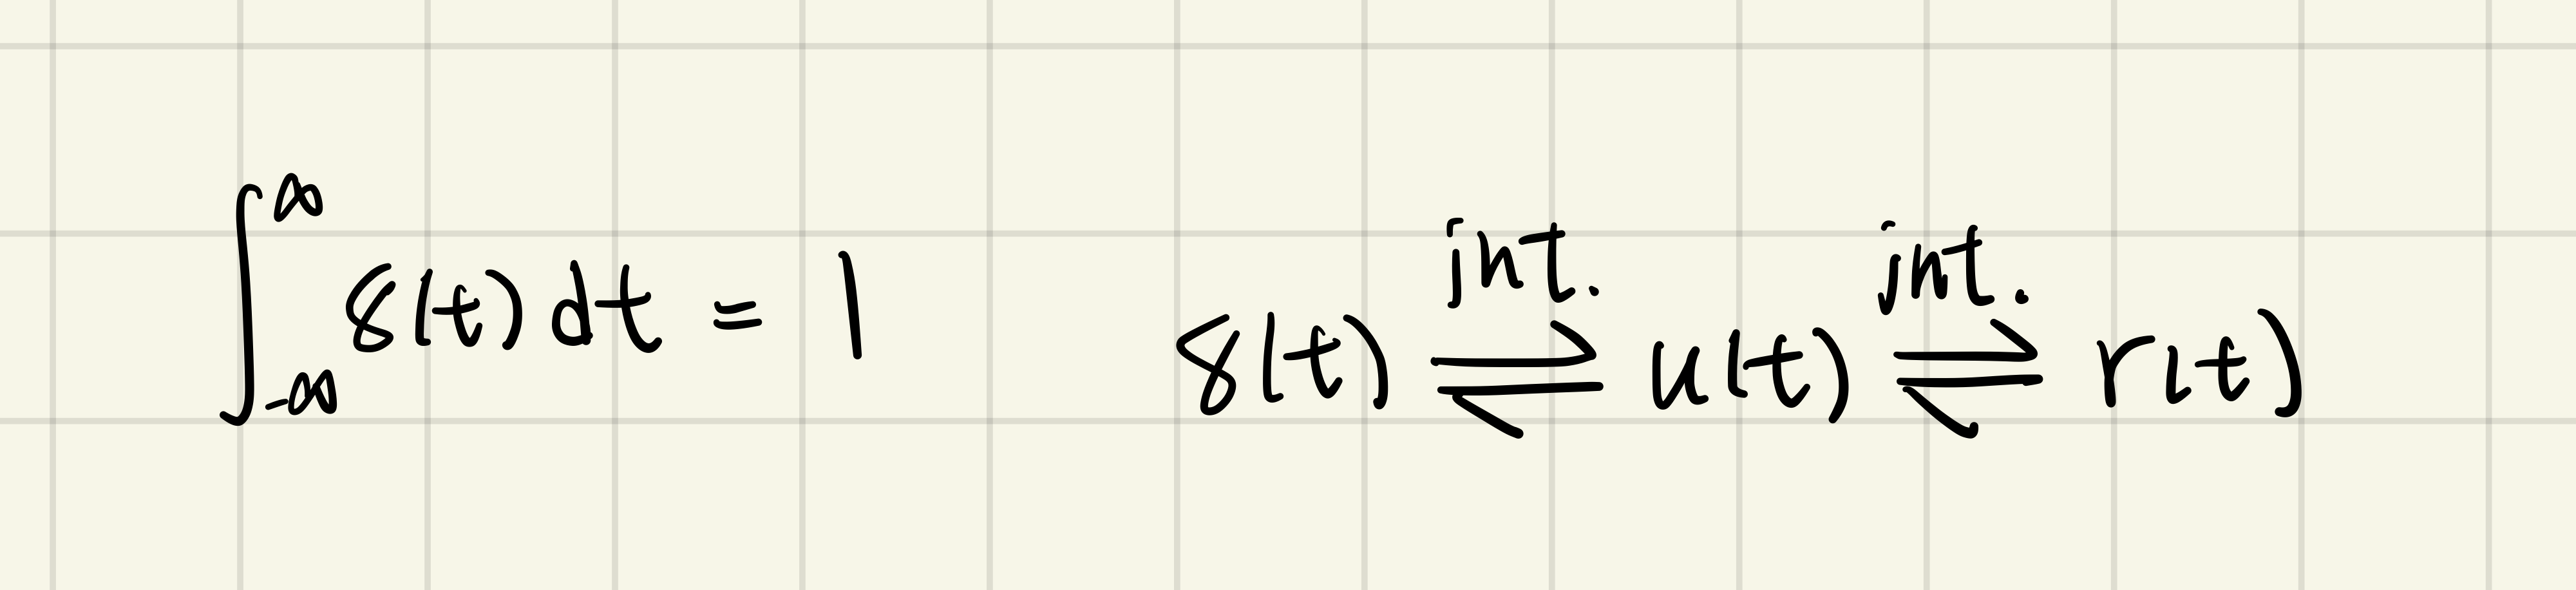 ∫_{-∞}^{∞} δ(t) dt = 1
δ(t) ⇌ int. u(t) ⇌ int. r(t)